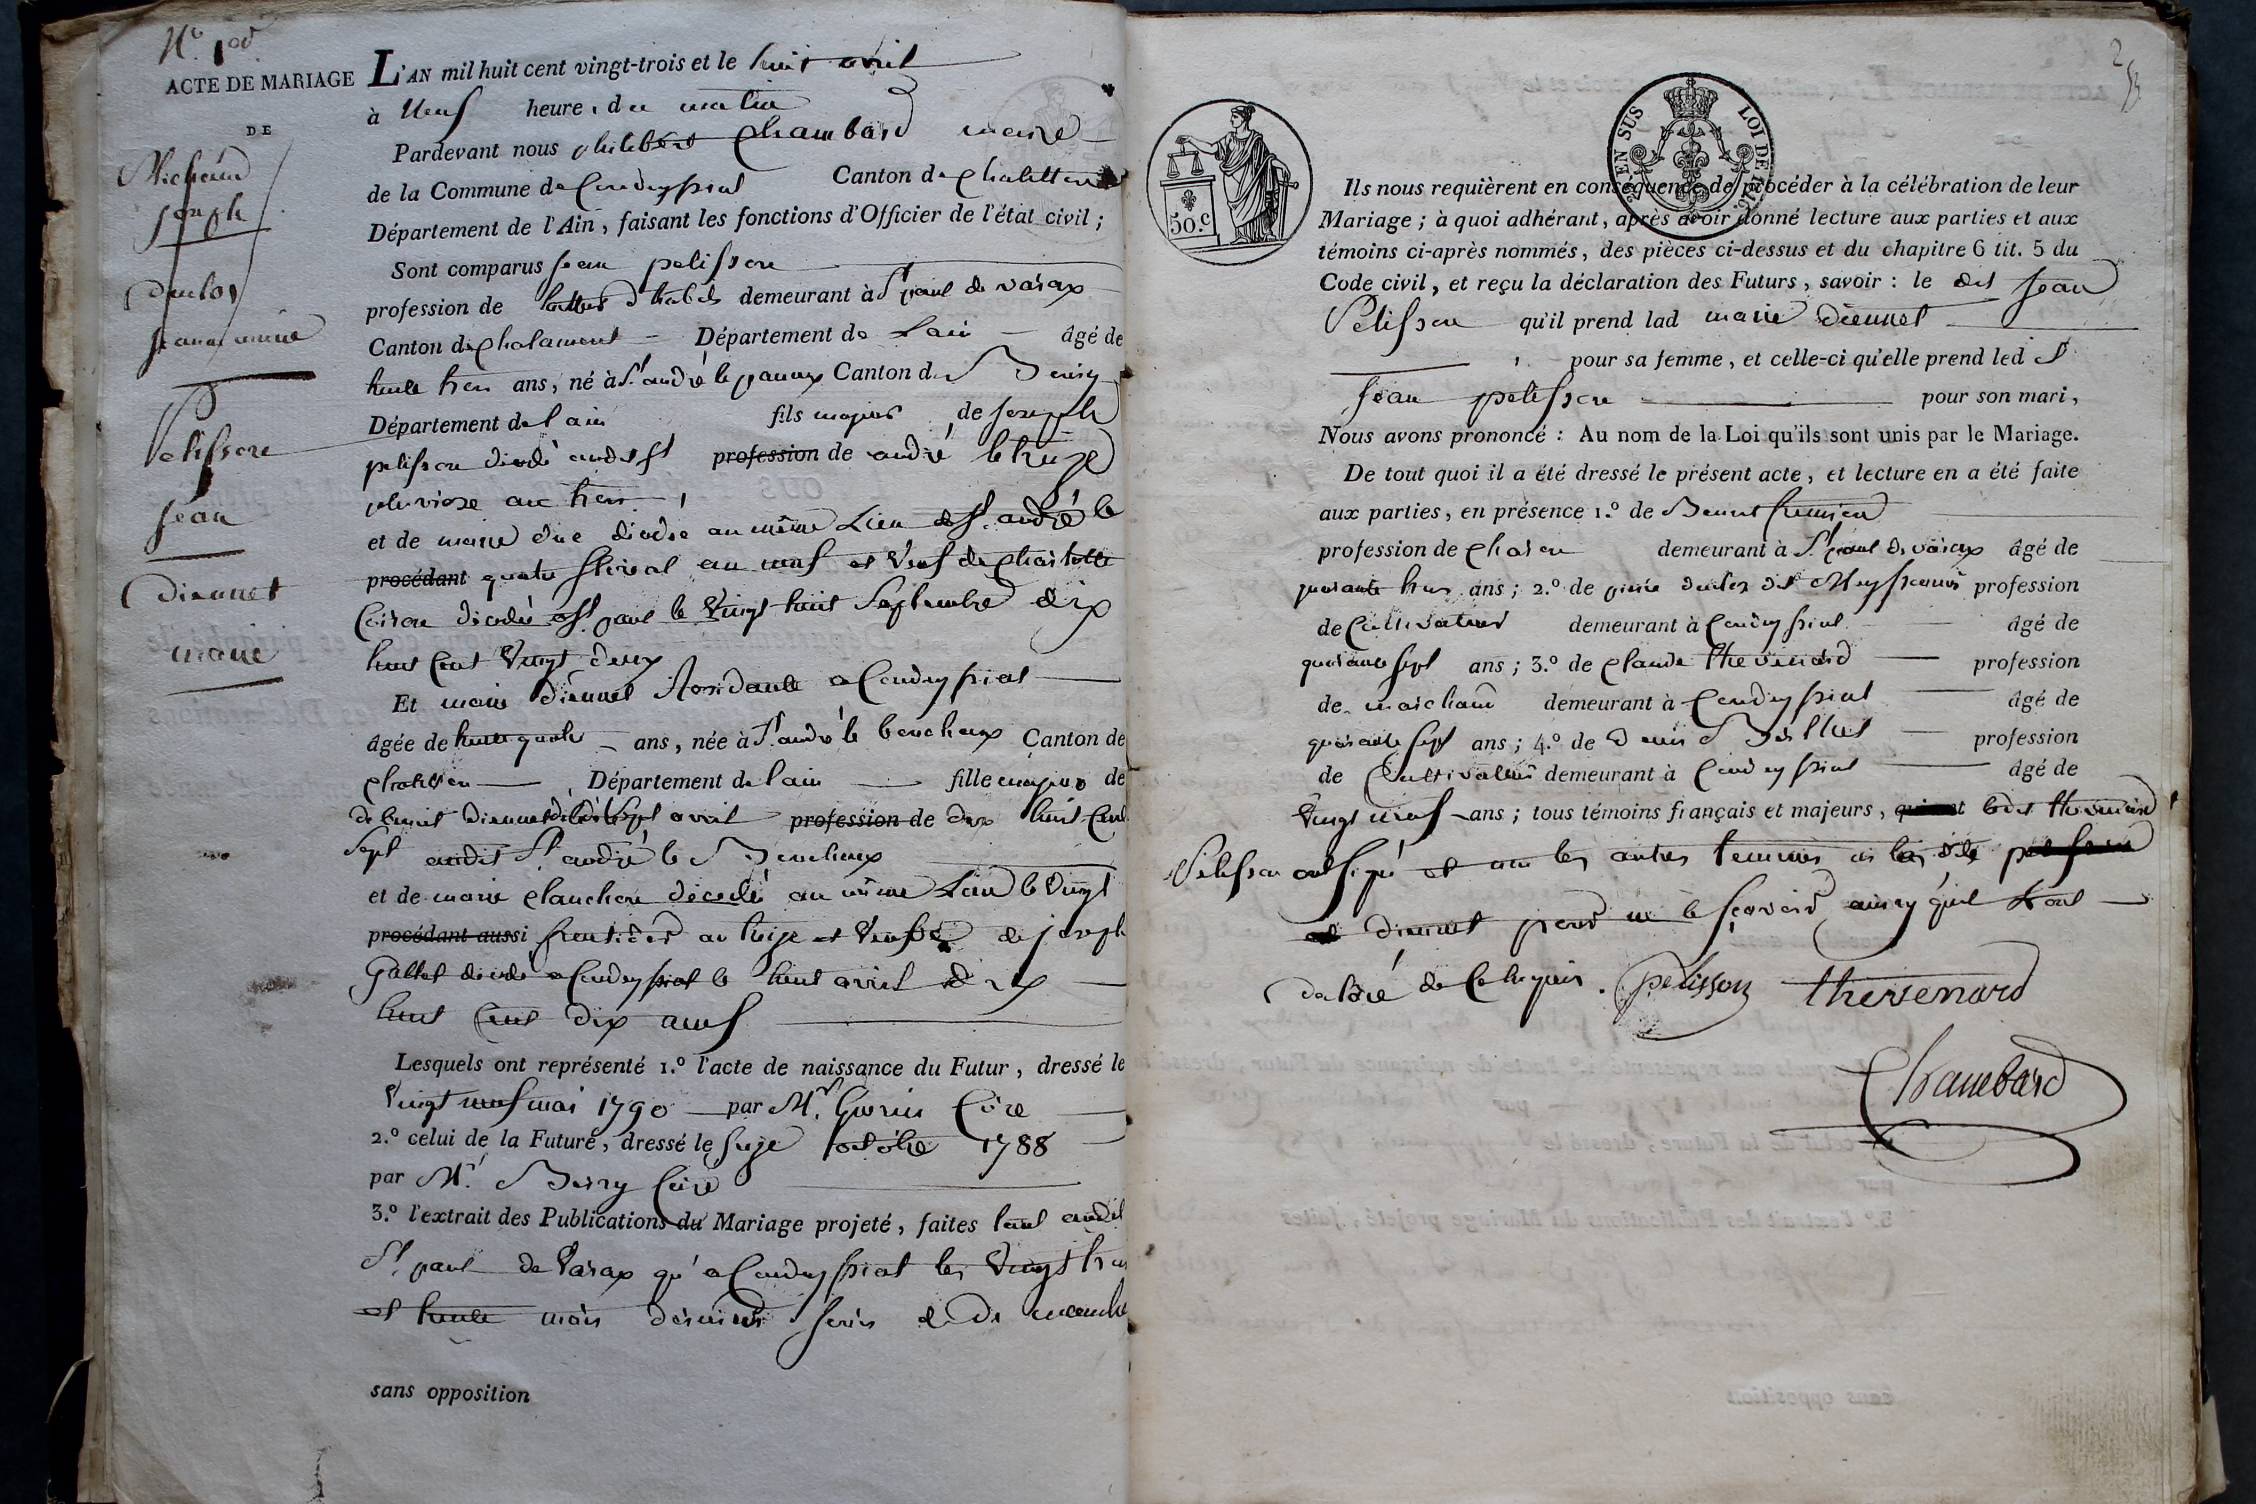 N.o 1er
ACTE DE MARIAGE
DE
Michaud
Joseph
duclos
jeanne marie
Pelisson
jean
diennet
marie
L'AN mil huit cent vingt-trois et le huit avril
à neuf heure, du matin
Pardevant nous philibert Chambard maire
de la Commune de Condeyssiat Canton de Chatillon
Département de l'Ain, faisant les fonctions d'Officier de l'état civil ;
Sont comparus jean pelisson
profession de d'habits demeurant à St paul de varax
Canton de Chalamont Département de Lain âgé de
trente trois ans, né à St andré le panoux Canton de
Département de lain fils majeur de joseph
pelisson décédé audit St profession de andré le treize
pluviose an trois,
et de marie décédée au même Lieu de St andré le
procédant quatre floréal an neuf et veuf de Charlotte
décédée a St paul le vingt huit Septembre dix
huit Cent vingt deux
Et marie diennet Residante a Condeyssiat
âgée de trente quatre ans, née à St andré le bouchoux Canton de
Chatillon Département de lain fille majeure de
de benoit diennet décédé le Sept avril profession de dix huit Cent
Sept audit St andré le Bouchoux
et de marie planchon décédée au même Lieu le vingt
procédant aussi an treize et veuve de joseph
Gallet décédé a Condeyssiat le huit avril dix
huit Cent dix neuf
Lesquels ont représenté 1.o l'acte de naissance du Futur, dressé le
vingt neuf mai 1790 par M.r Guerin Curé
2.o celui de la Future, dressé le seize octobre 1788
par M.r Curé
3.o l'extrait des Publications du Mariage projeté, faites tant audit
St paul de Varax qu'a Condeyssiat les vingt trois
et trente mars dernier jours de dimanche
sans opposition
2
50.C
2.E EN SUS LOI DE 1816.
Ils nous requièrent en conséquence de procéder à la célébration de leur
Mariage ; à quoi adhérant, après avoir donné lecture aux parties et aux
témoins ci-après nommés, des pièces ci-dessus et du chapitre 6 tit. 5 du
Code civil, et reçu la déclaration des Futurs, savoir : le dit jean
Pelisson qu'il prend lad marie diennet
, pour sa femme, et celle-ci qu'elle prend led
jean pelisson pour son mari,
Nous avons prononcé : Au nom de la Loi qu'ils sont unis par le Mariage.
De tout quoi il a été dressé le présent acte, et lecture en a été faite
aux parties, en présence 1.o de Benoit
profession de demeurant à St paul de varax âgé de
quarante trois ans ; 2.o de pierre duclos dit profession
de Cultivateur demeurant à Condeyssiat âgé de
quarante sept ans ; 3.o de Claude thevenard profession
de marchand demeurant à Condeyssiat âgé de
quarante sept ans ; 4.o de Denis profession
de Cultivateur demeurant à Condeyssiat âgé de
vingt neuf ans ; tous témoins français et majeurs, ledit thevenard
Pelisson ont signé et non les autres temoins ni
diennet pour ne le sçavoir ainsy qu'il l'ont
declaré de Ce requis. pelisson thevenard
Chambard